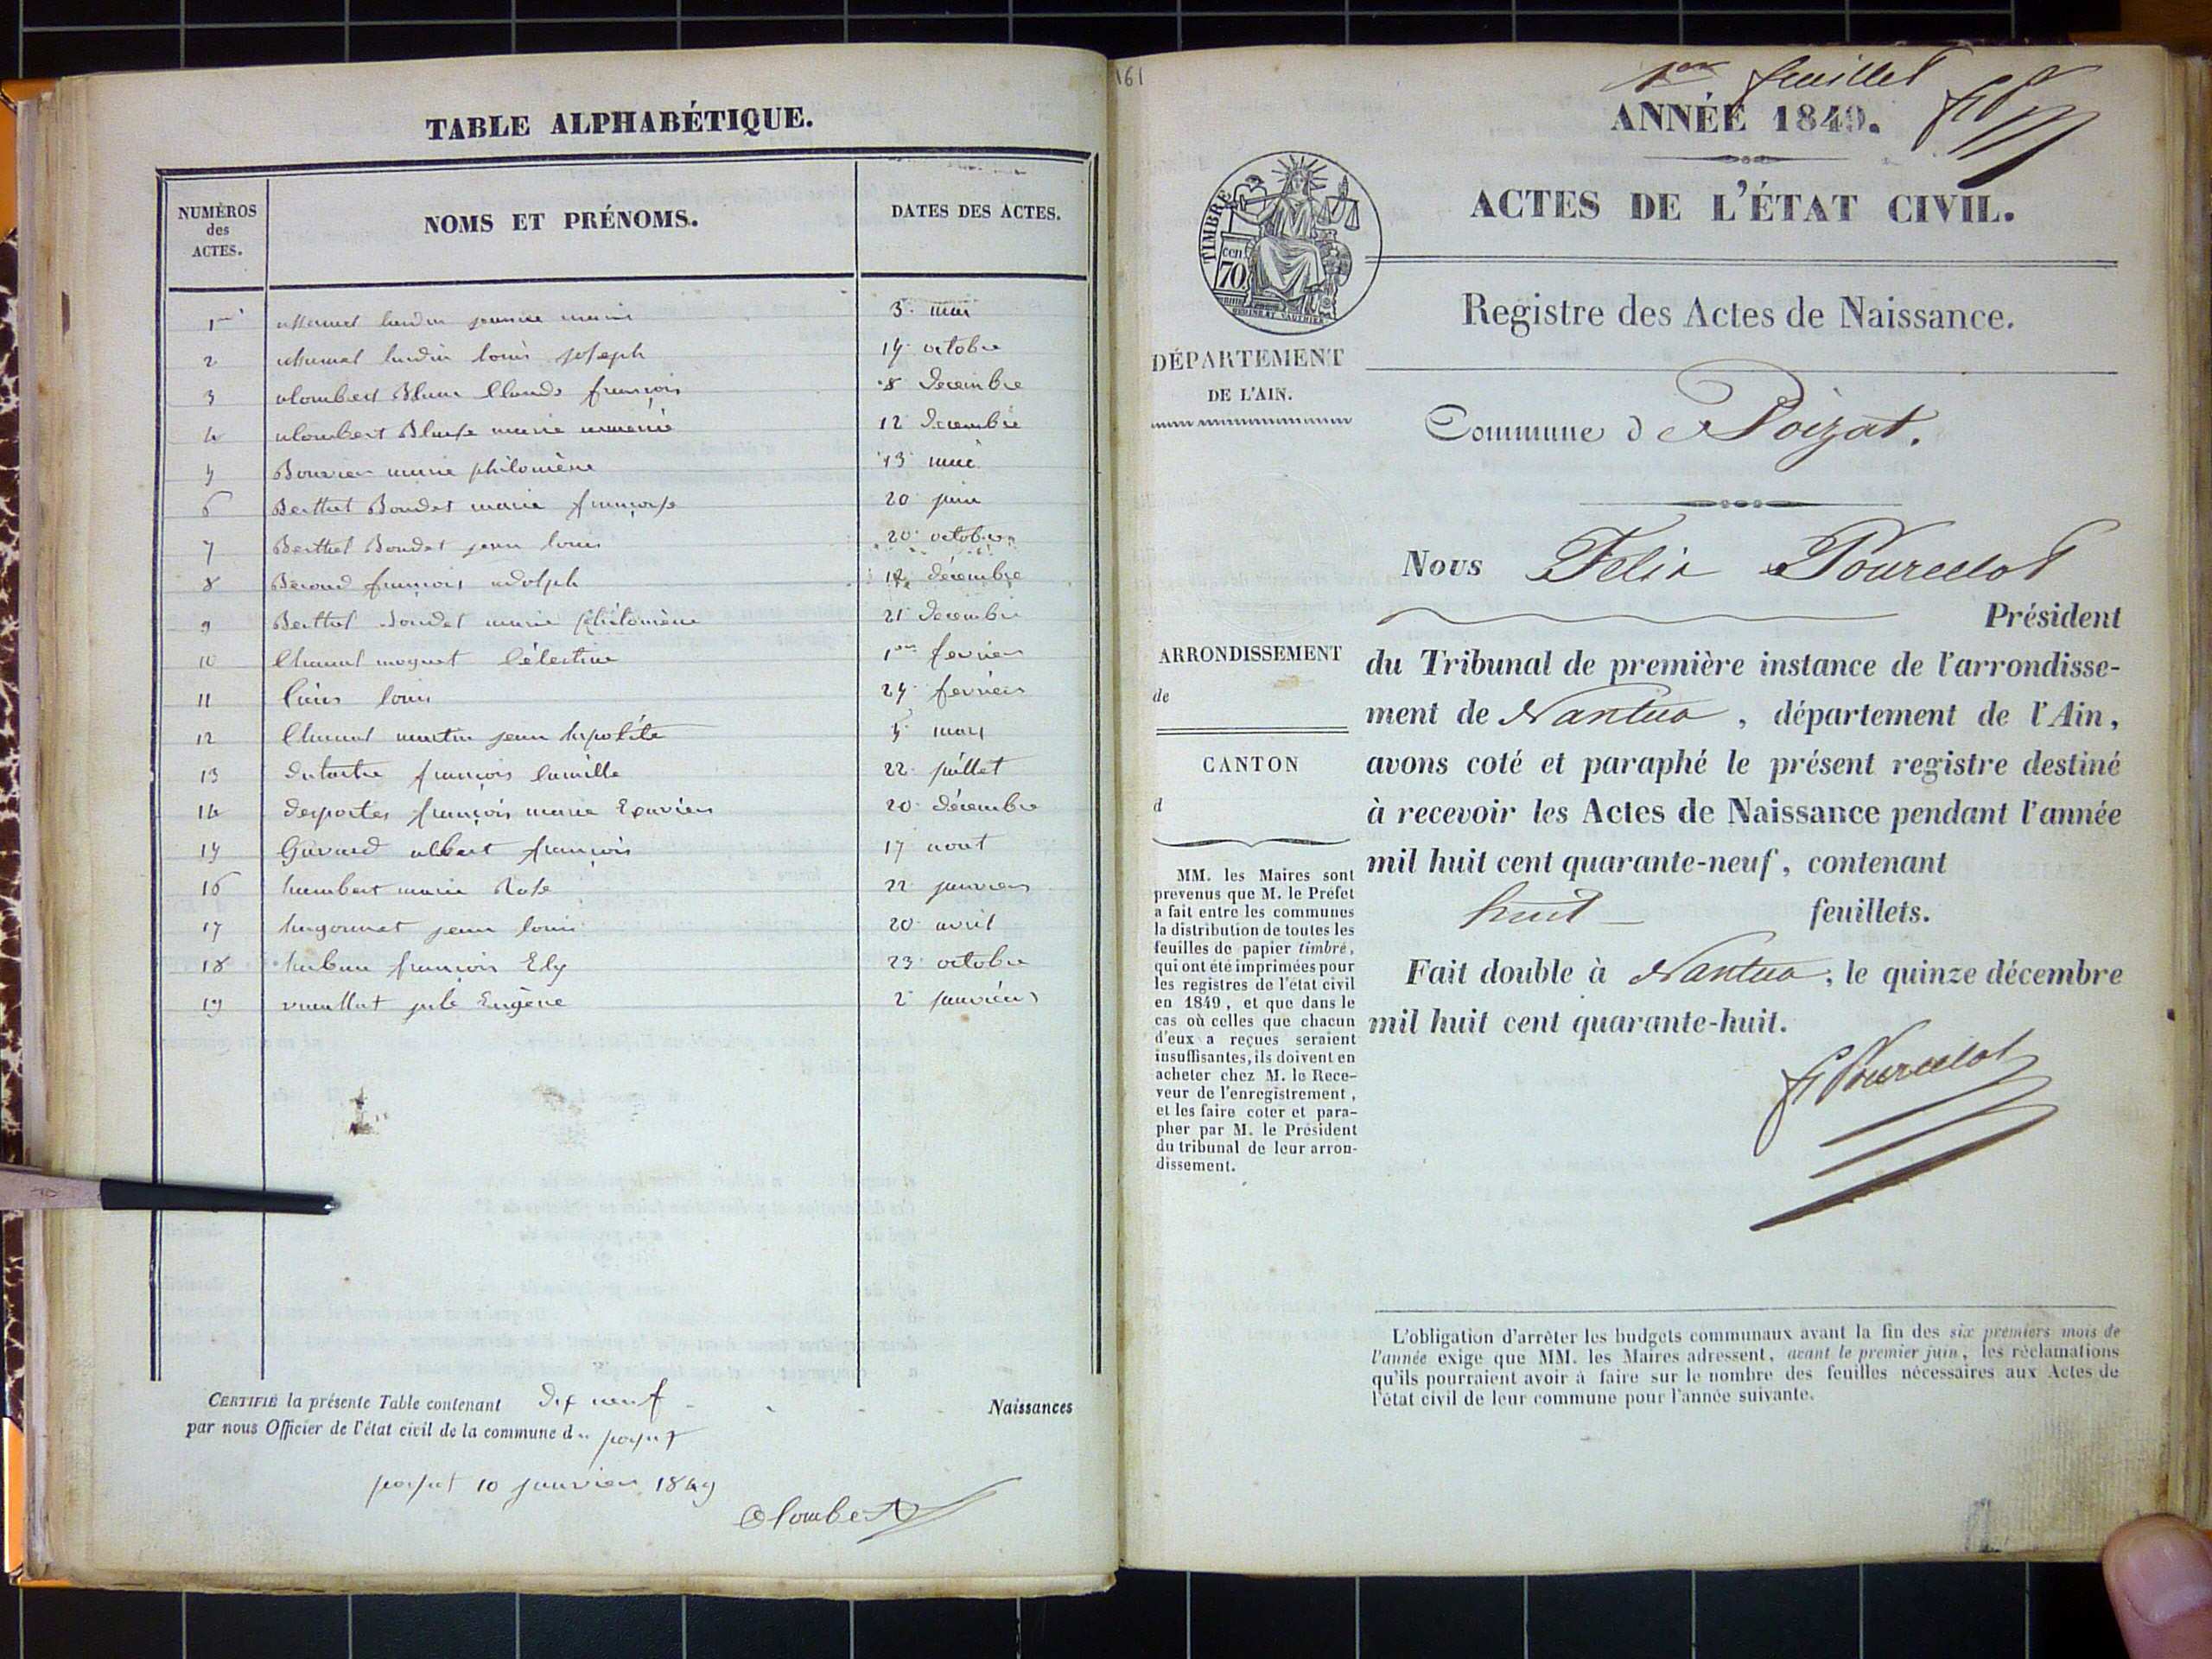 TABLE ALPHABÉTIQUE.
NUMÉROS des ACTES.
NOMS ET PRÉNOMS.
DATES DES ACTES.
1 3 mai
2 louis joseph 14 octobre
3 alombert Claude françois 8 decembre
4 alombert Blaise marie 12 decembre
5 Bouvier marie philomène 13 mai
6 Berthet Boudet marie françoise 20 juin
7 Berthet Boudet jean louis 20 octobre
8 Béroud françois adolph décembre
9 Berthet Boudet marie philomène 21 decembre
10 Chanal moguet Célestine 1er fevrier
11 louis 24 fevrier
12 Chanal martin jean hipolite 5 mars
13 dutartre françois Camille 22 juillet
14 desportes françois marie 20 décembre
15 Gavard albert françois 17 aout
16 humbert marie Rose 22 janvier
17 hugonnet jean louis 20 avril
18 françois Ely 23 octobre
19 Eugène 2 janvier
CERTIFIÉ la présente Table contenant dix neuf Naissances
par nous Officier de l'état civil de la commune du poizat
poizat 10 janvier 1849
Alombert
161
1er feuillet
ANNÉE 1849.
ACTES DE L'ÉTAT CIVIL.
TIMBRE
70 cen
Registre des Actes de Naissance.
DÉPARTEMENT
DE L'AIN.
Commune d Poizat.
Nous Felix Pourcelot
Président
ARRONDISSEMENT
de
CANTON
d
du Tribunal de première instance de l'arrondisse-
ment de Nantua, département de l'Ain,
avons coté et paraphé le présent registre destiné
à recevoir les Actes de Naissance pendant l'année
mil huit cent quarante-neuf, contenant
huit feuillets.
Fait double à Nantua, le quinze décembre
mil huit cent quarante-huit.
F Pourcelot
MM. les Maires sont
prévenus que M. le Préfet
a fait entre les communes
la distribution de toutes les
feuilles de papier timbré,
qui ont été imprimées pour
les registres de l'état civil
en 1849, et que dans le
cas où celles que chacun
d'eux a reçues seraient
insuffisantes, ils doivent en
acheter chez M. le Rece-
veur de l'enregistrement,
et les faire coter et para-
pher par M. le Président
du tribunal de leur arron-
dissement.
L'obligation d'arrêter les budgets communaux avant la fin des six premiers mois de
l'année exige que MM. les Maires adressent, avant le premier juin, les réclamations
qu'ils pourraient avoir à faire sur le nombre des feuilles nécessaires aux Actes de
l'état civil de leur commune pour l'année suivante.